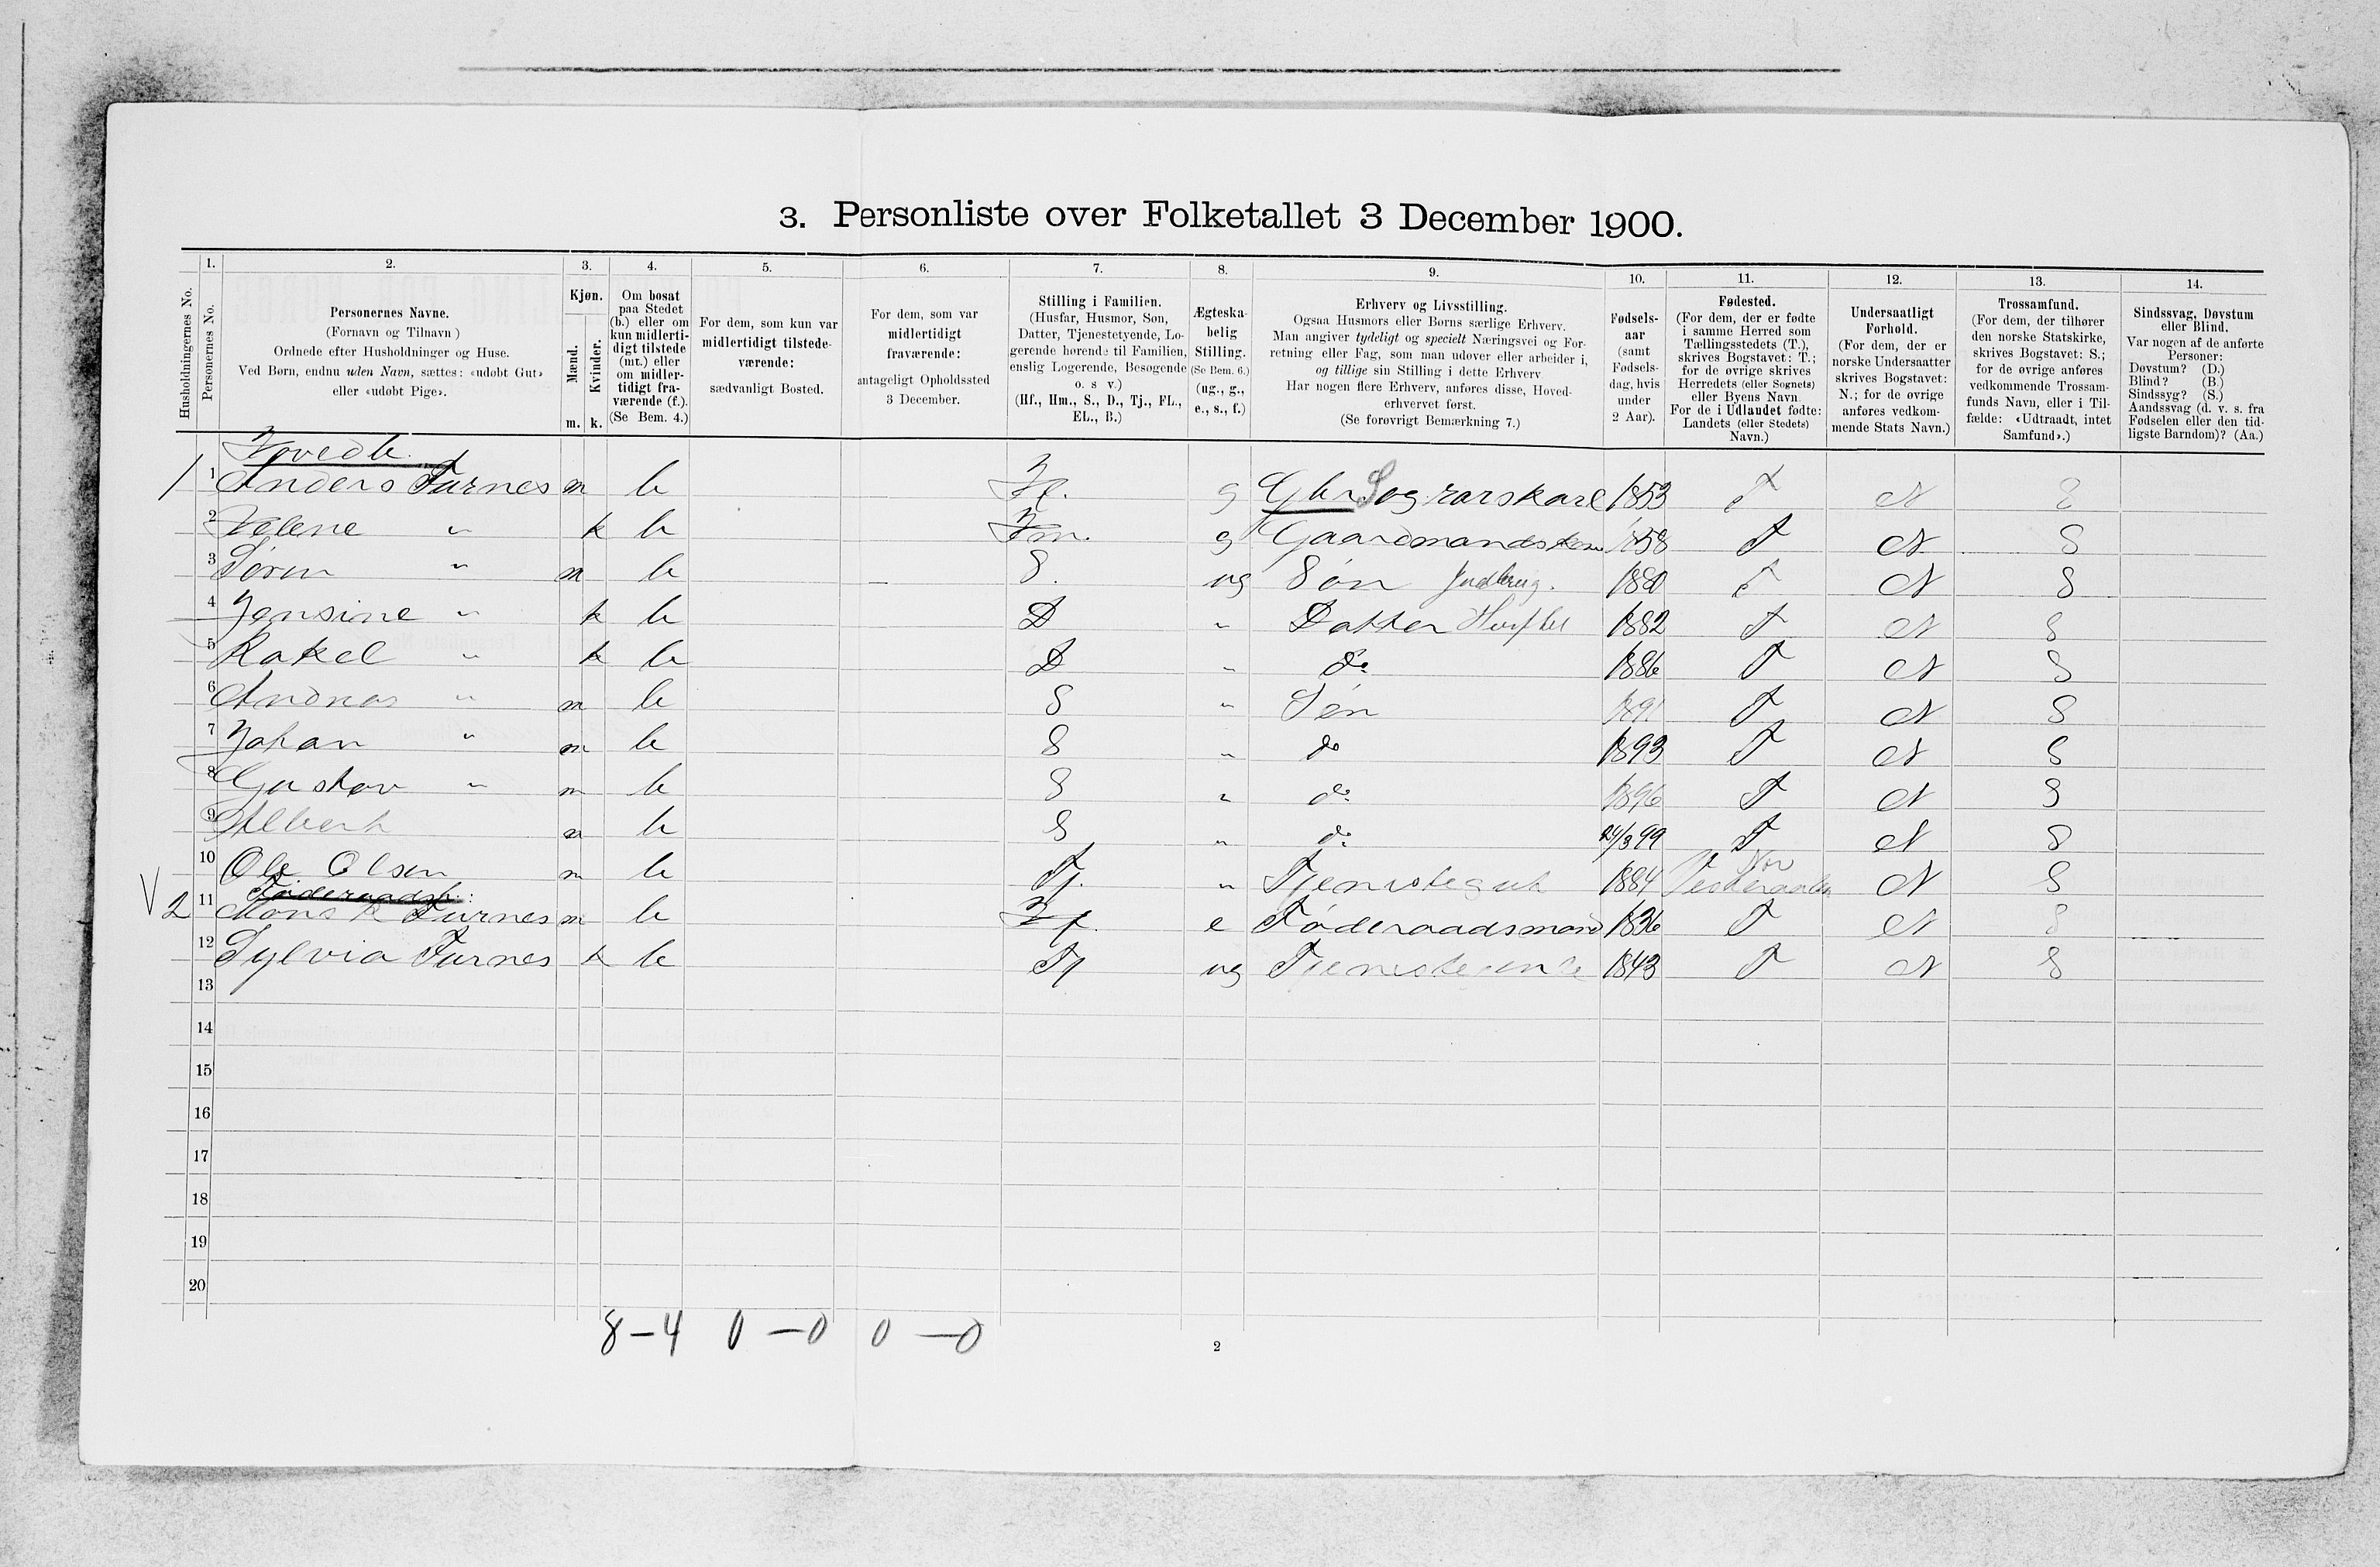 3. Personliste over Folketallet 3 December 1900.
Husholdningernes No.
1. Personernes No.
2. Personernes Navne.
(Fornavn og Tilnavn)
Ordnede efter Husholdninger og Huse.
Ved Børn, endnu uden Navn, sættes: «udøbt Gut»
eller «udøbt Pige».
3. Kjøn.
Mænd. Kvinder.
m. k.
4. Om bosat
paa Stedet
(b.) eller om
kun midlerti-
digt tilstede
(mt.) eller
om midler-
tidigt fra-
værende (f.).
(Se Bem. 4.)
5. For dem, som kun var
midlertidigt tilstede-
værende:
sædvanligt Bosted.
6. For dem, som var
midlertidigt
fraværende:
antageligt Opholdssted
3 December.
7. Stilling i Familien.
(Husfar, Husmor, Søn,
Datter, Tjenestetyende, Lo-
gerende hørende til Familien,
enslig Logerende, Besøgende
o. s v.)
(Hf., Hm., S., D., Tj., FL.,
EL., B.)
8. Ægteska-
belig
Stilling.
(Se Bem. 6.)
(ug., g.,
e., s., f.)
9. Erhverv og Livsstilling.
Ogsaa Husmors eller Børns særlige Erhverv.
Man angiver tydeligt og specielt Næringsvei og For-
retning eller Fag, som man udøver eller arbeider i,
og tillige sin Stilling i dette Erhverv
Har nogen flere Erhverv, anføres disse, Hoved-
erhvervet først.
(Se forøvrigt Bemærkning 7.)
10. Fødsels-
aar
(samt
Fødsels-
dag, hvis
under
2 Aar).
11. Fødested.
(For dem, der er fødte
i samme Herred som
Tællingsstedets (T.),
skrives Bogstavet: T.;
for de øvrige skrives
Herredets (eller Sognets)
eller Byens Navn.
For de i Udlandet fødte:
Landets (eller Stedets)
Navn.)
12. Undersaatligt
Forhold.
(For dem, der er
norske Undersaatter
skrives Bogstavet:
N.; for de øvrige
anføres vedkom-
mende Stats Navn.)
13. Trossamfund.
(For dem, der tilhører
den norske Statskirke,
skrives Bogstavet: S.;
for de øvrige anføres
vedkommende Trossam-
funds Navn, eller i Til-
fælde: «Udtraadt, intet
Samfund».)
14. Sindssvag, Døvstum
eller Blind.
Var nogen af de anførte
Personer:
Døvstum? (D.)
Blind? (B.)
Sindssyg? (S.)
Aandssvag (d. v. s. fra
Fødselen eller den tid-
ligste Barndom)? (Aa.)
Hovedb.
1 1 Anders Furnes m b Hf. g Gbr S og 1853 T N S
2 Helene " k b Hm. g Gaardmandskone 1858 T N S
3 Søren " m b S. ug Søn Jndbrug. 1880 T N S
4 Jensine " k b D " Datter 1882 T N S
5 Rakel " k b D " do 1886 T N S
6 Andreas " m b S " Søn 1891 T N S
7 Johan " m b S " do 1893 T N S
8 Gustav " m b S " do 1896 T N S
9 Albert m b S " do 24/3 99 T N S
10 Ole Olsen m b Tj. " Tjenestegut 1884 N S
Føderaadsb:
V 2 11 Mons Furnes m b Hf. e Føderaadsmand 1836 T N S
12 Sylvia Furnes k b Tj ug Tjenestejente 1843 T N S
13
14
15
16
17
18
19
20
8–4 0–0 0–0
2